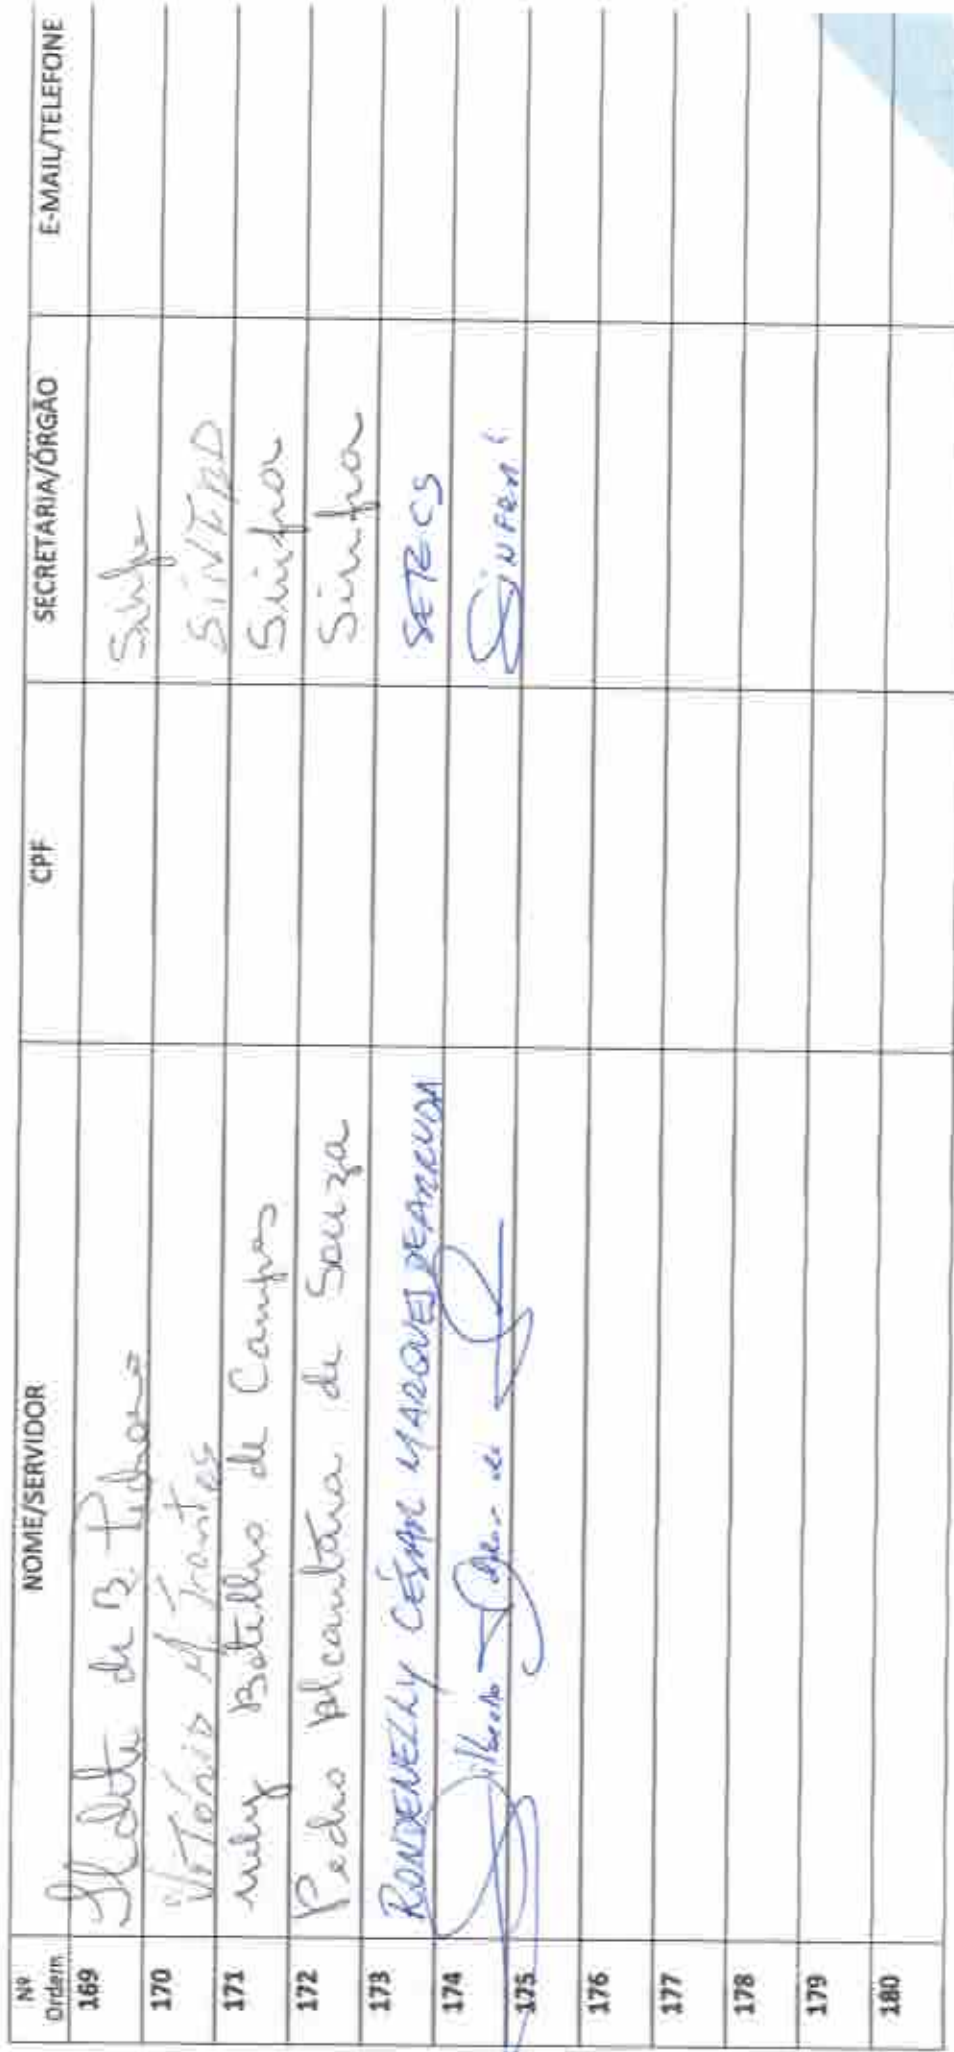 Nº Ordem NOME/SERVIDOR CPF SECRETARIA/ÓRGÃO E-MAIL/TELEFONE
169 de B.
170
171 Botelho de Campos Sinfra
172 Pedro Alcantara de Souza Sinfra
173 RONDENELLY CÉSAR MARQUES DE ARRUDA SETECS
174 Gilberto
175
176
177
178
179
180